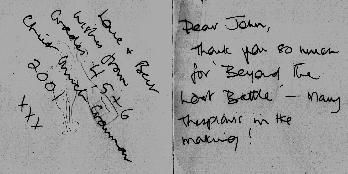 Love + Best
wishes from
Grades 4, 5 + 6
Christ Church Grammar
2001
xxx
Dear John,
Thank you so much
for 'Beyond the
Last Battle' – many
thespians in the
making!